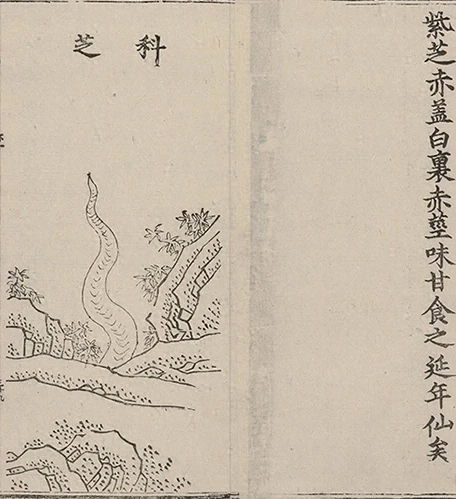 紫芝赤盖白裏赤莖味甘食之延年仙矣
科芝